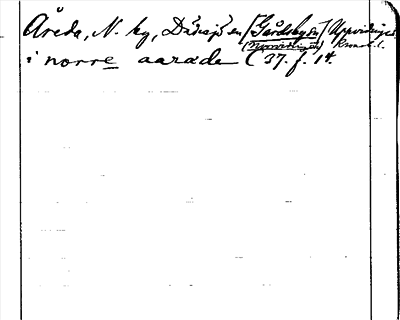 Åreda, N. by, Dädesjö en [Gårdsby sn] Uppvidinge
(Norrvidinge) Kronob. l.
i norre aaræda (37. f. 14.